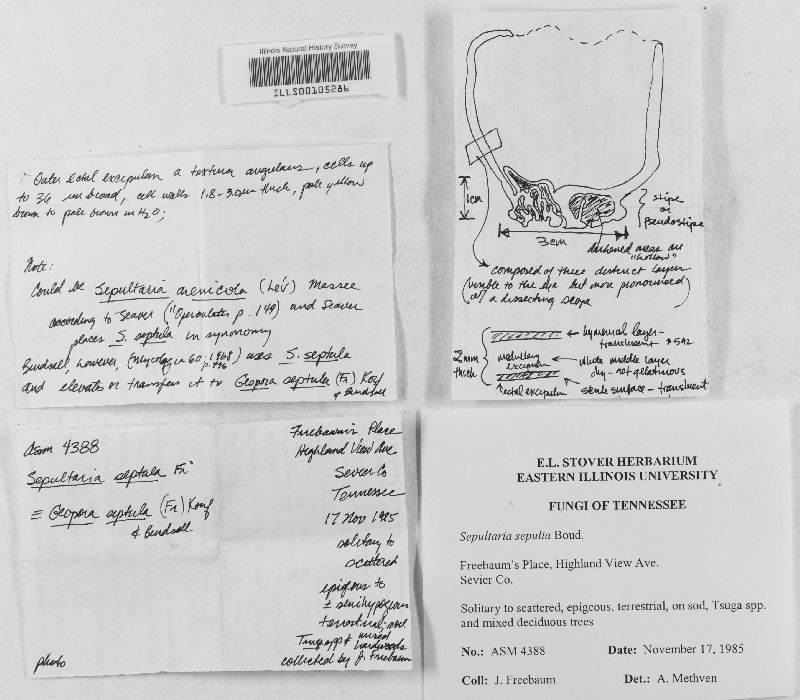 Illinois Natural History Survey
ILLS00105286
Outer ectal excipulum a textura angularis, cells up
to 36 um broad, cell walls 1.8-3.0um thick, pale yellow
brown to pale brown in H2O;
Note:
Could be Sepultaria arenicola (Lév) Massee
according to Seaver ("Operculates p. 149) and Seaver
places S. septula in synonomy
Burdsall, however, (Mycologia 60: 1968 p. 496) uses S. septula
and elevates or transfers it to Geopora septula (Fr) Korf
& Burdsall
1cm
3cm
stipe
or
pseudostipe
darkened areas are
"hollow"
composed of three distinct layers
(visible to the eye but more pronounced)
w/ a dissecting scope
2mm
thick
hymenial layer-
translucent
medullary
excipulum
white middle layer
dry-not gelatinous
ectal excipulum
sterile surface - translucent
Asm 4388
Sepultaria septula Fr
≡ Geopora septula (Fr) Korf
& Burdsall
photo
Freebaum's Place
Highland View Ave
Sevier Co
Tennessee
17 Nov 1985
solitary to
scattered
epigeous to
± semihypogeous
terrestrial; sod
Tsuga spp & mixed
hardwoods
collected by J. Freebaum
E.L. STOVER HERBARIUM
EASTERN ILLINOIS UNIVERSITY
FUNGI OF TENNESSEE
Sepultaria sepulta Boud.
Freebaum's Place, Highland View Ave.
Sevier Co.
Solitary to scattered, epigeous, terrestrial, on sod, Tsuga spp.
and mixed deciduous trees
No.: ASM 4388 Date: November 17, 1985
Coll: J. Freebaum Det.: A. Methven